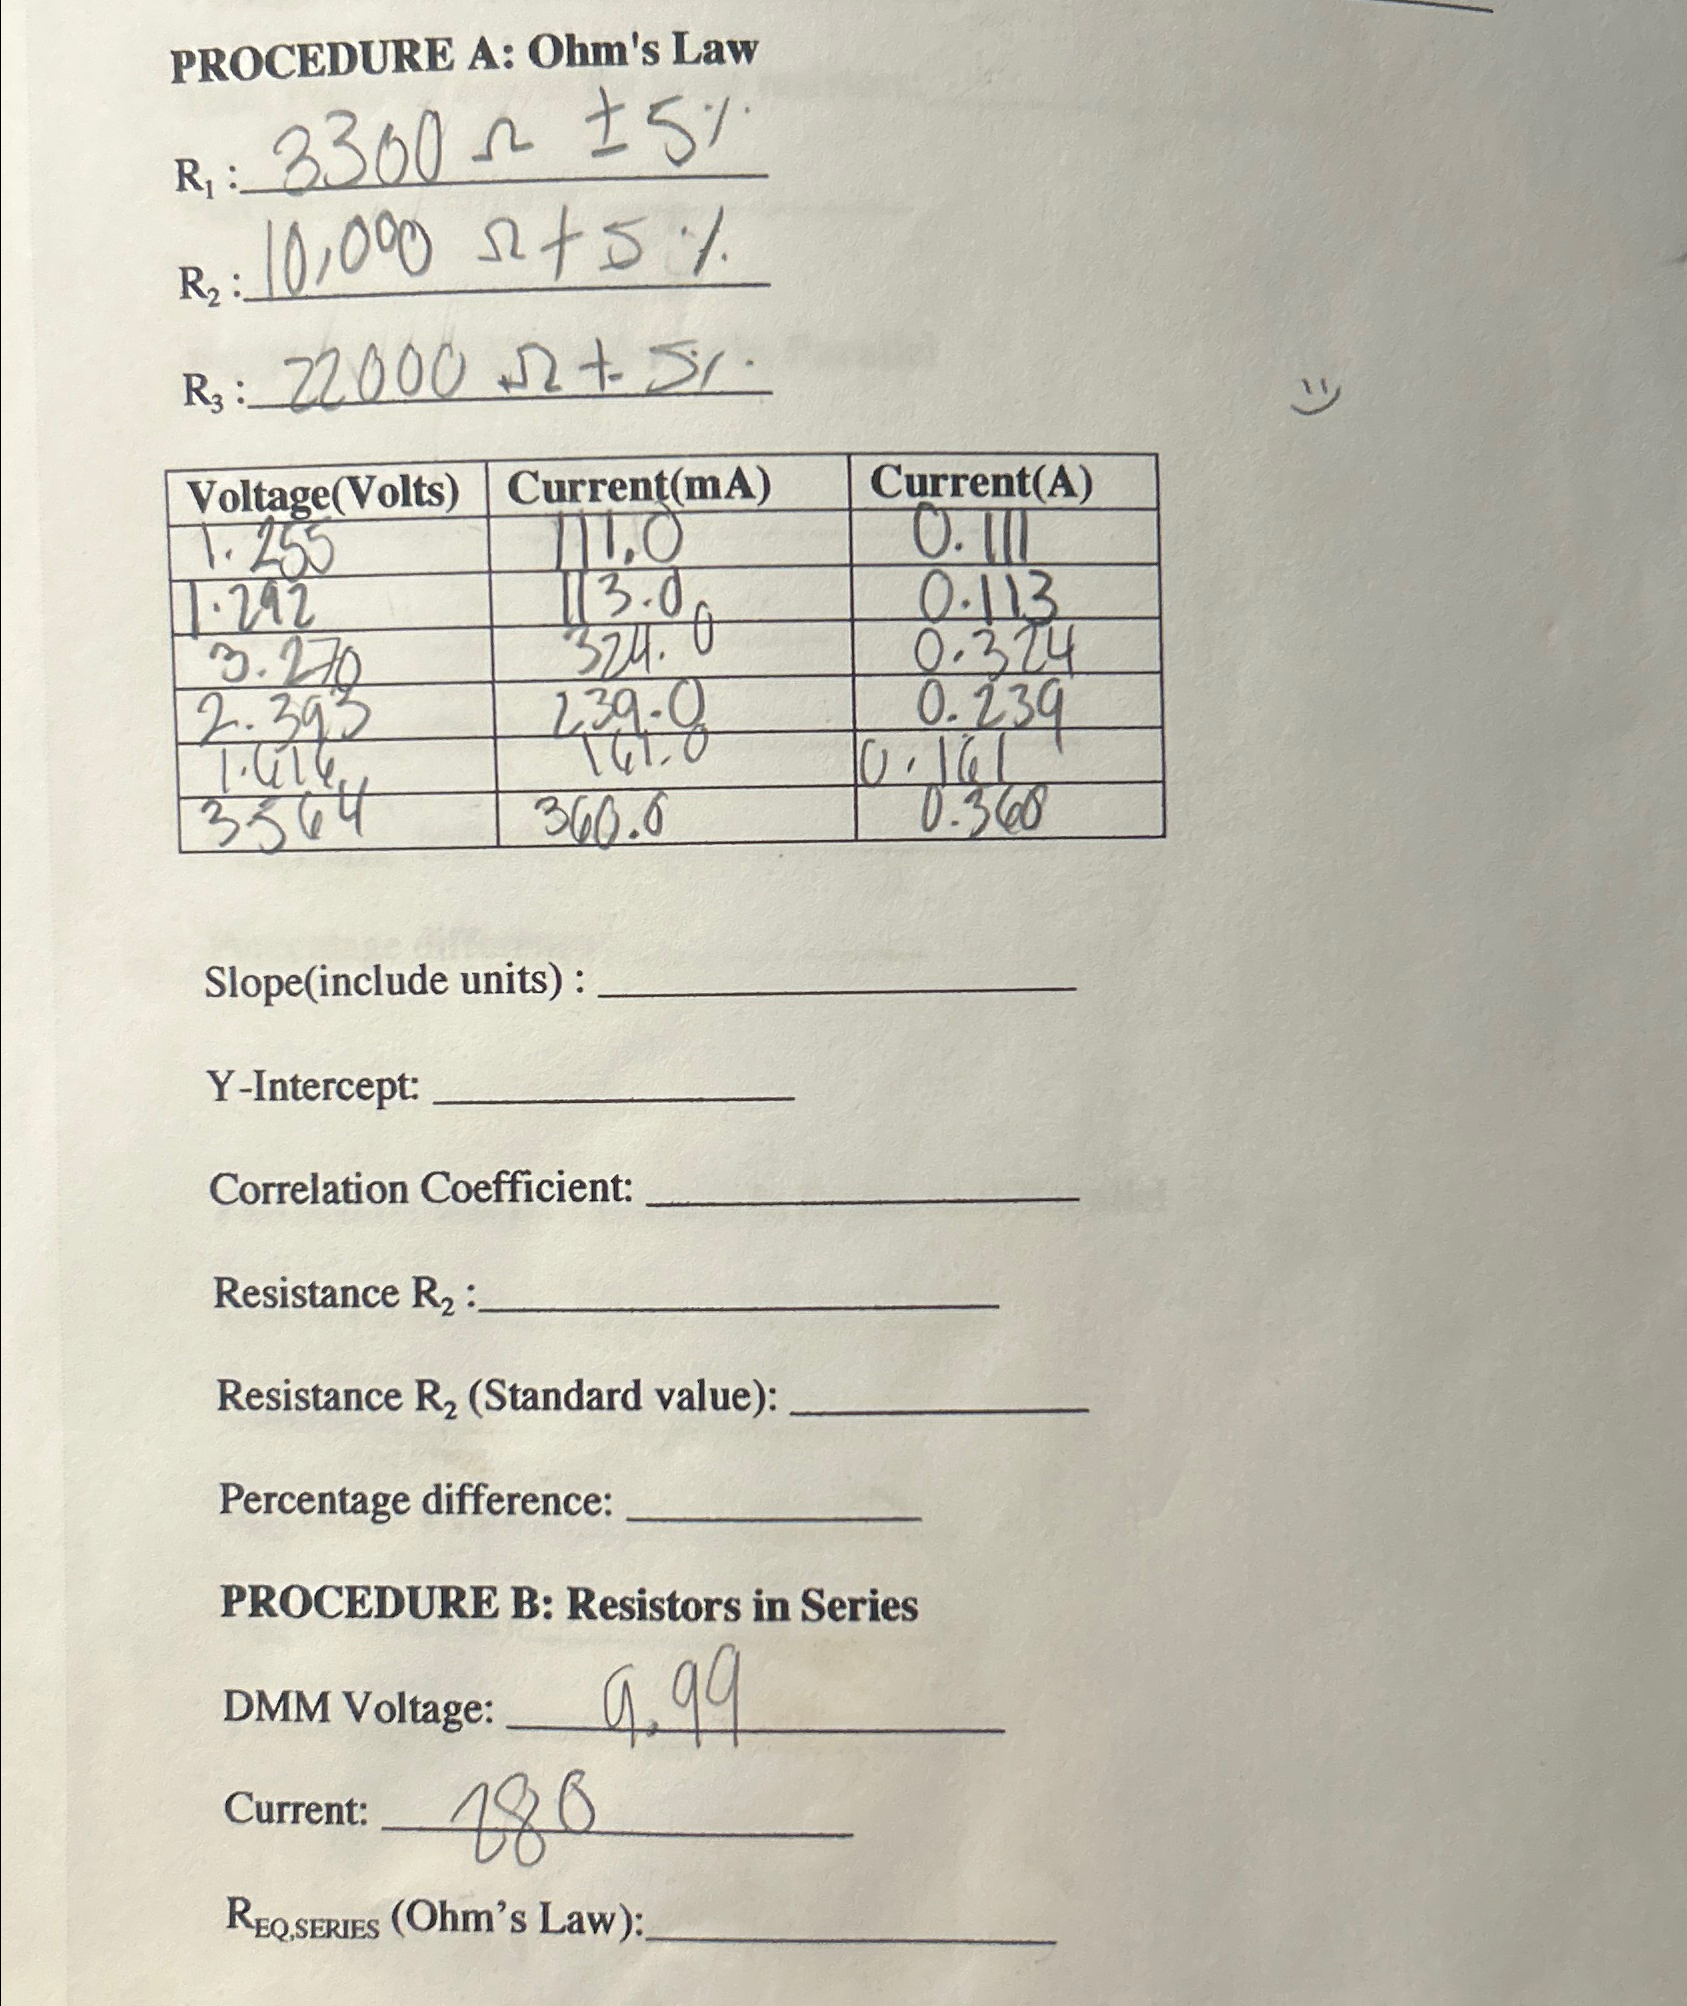 PROCEDURE A: Ohm's Law
R₁ : 3300 Ω ± 5%
R₂ : 10,000 Ω + 5 %
R₃ : 22000 Ω +- 5%
Voltage(Volts) Current(mA) Current(A)
1.255 111.0 0.111
1.292 113.0 0.113
3.270 324.0 0.324
2.393 239.0 0.239
1.616 161.0 0.161
3564 360.0 0.360
Slope(include units) :
Y-Intercept:
Correlation Coefficient:
Resistance R₂ :
Resistance R₂ (Standard value):
Percentage difference:
PROCEDURE B: Resistors in Series
DMM Voltage: 9.99
Current: 280
R_EQ,SERIES (Ohm's Law):